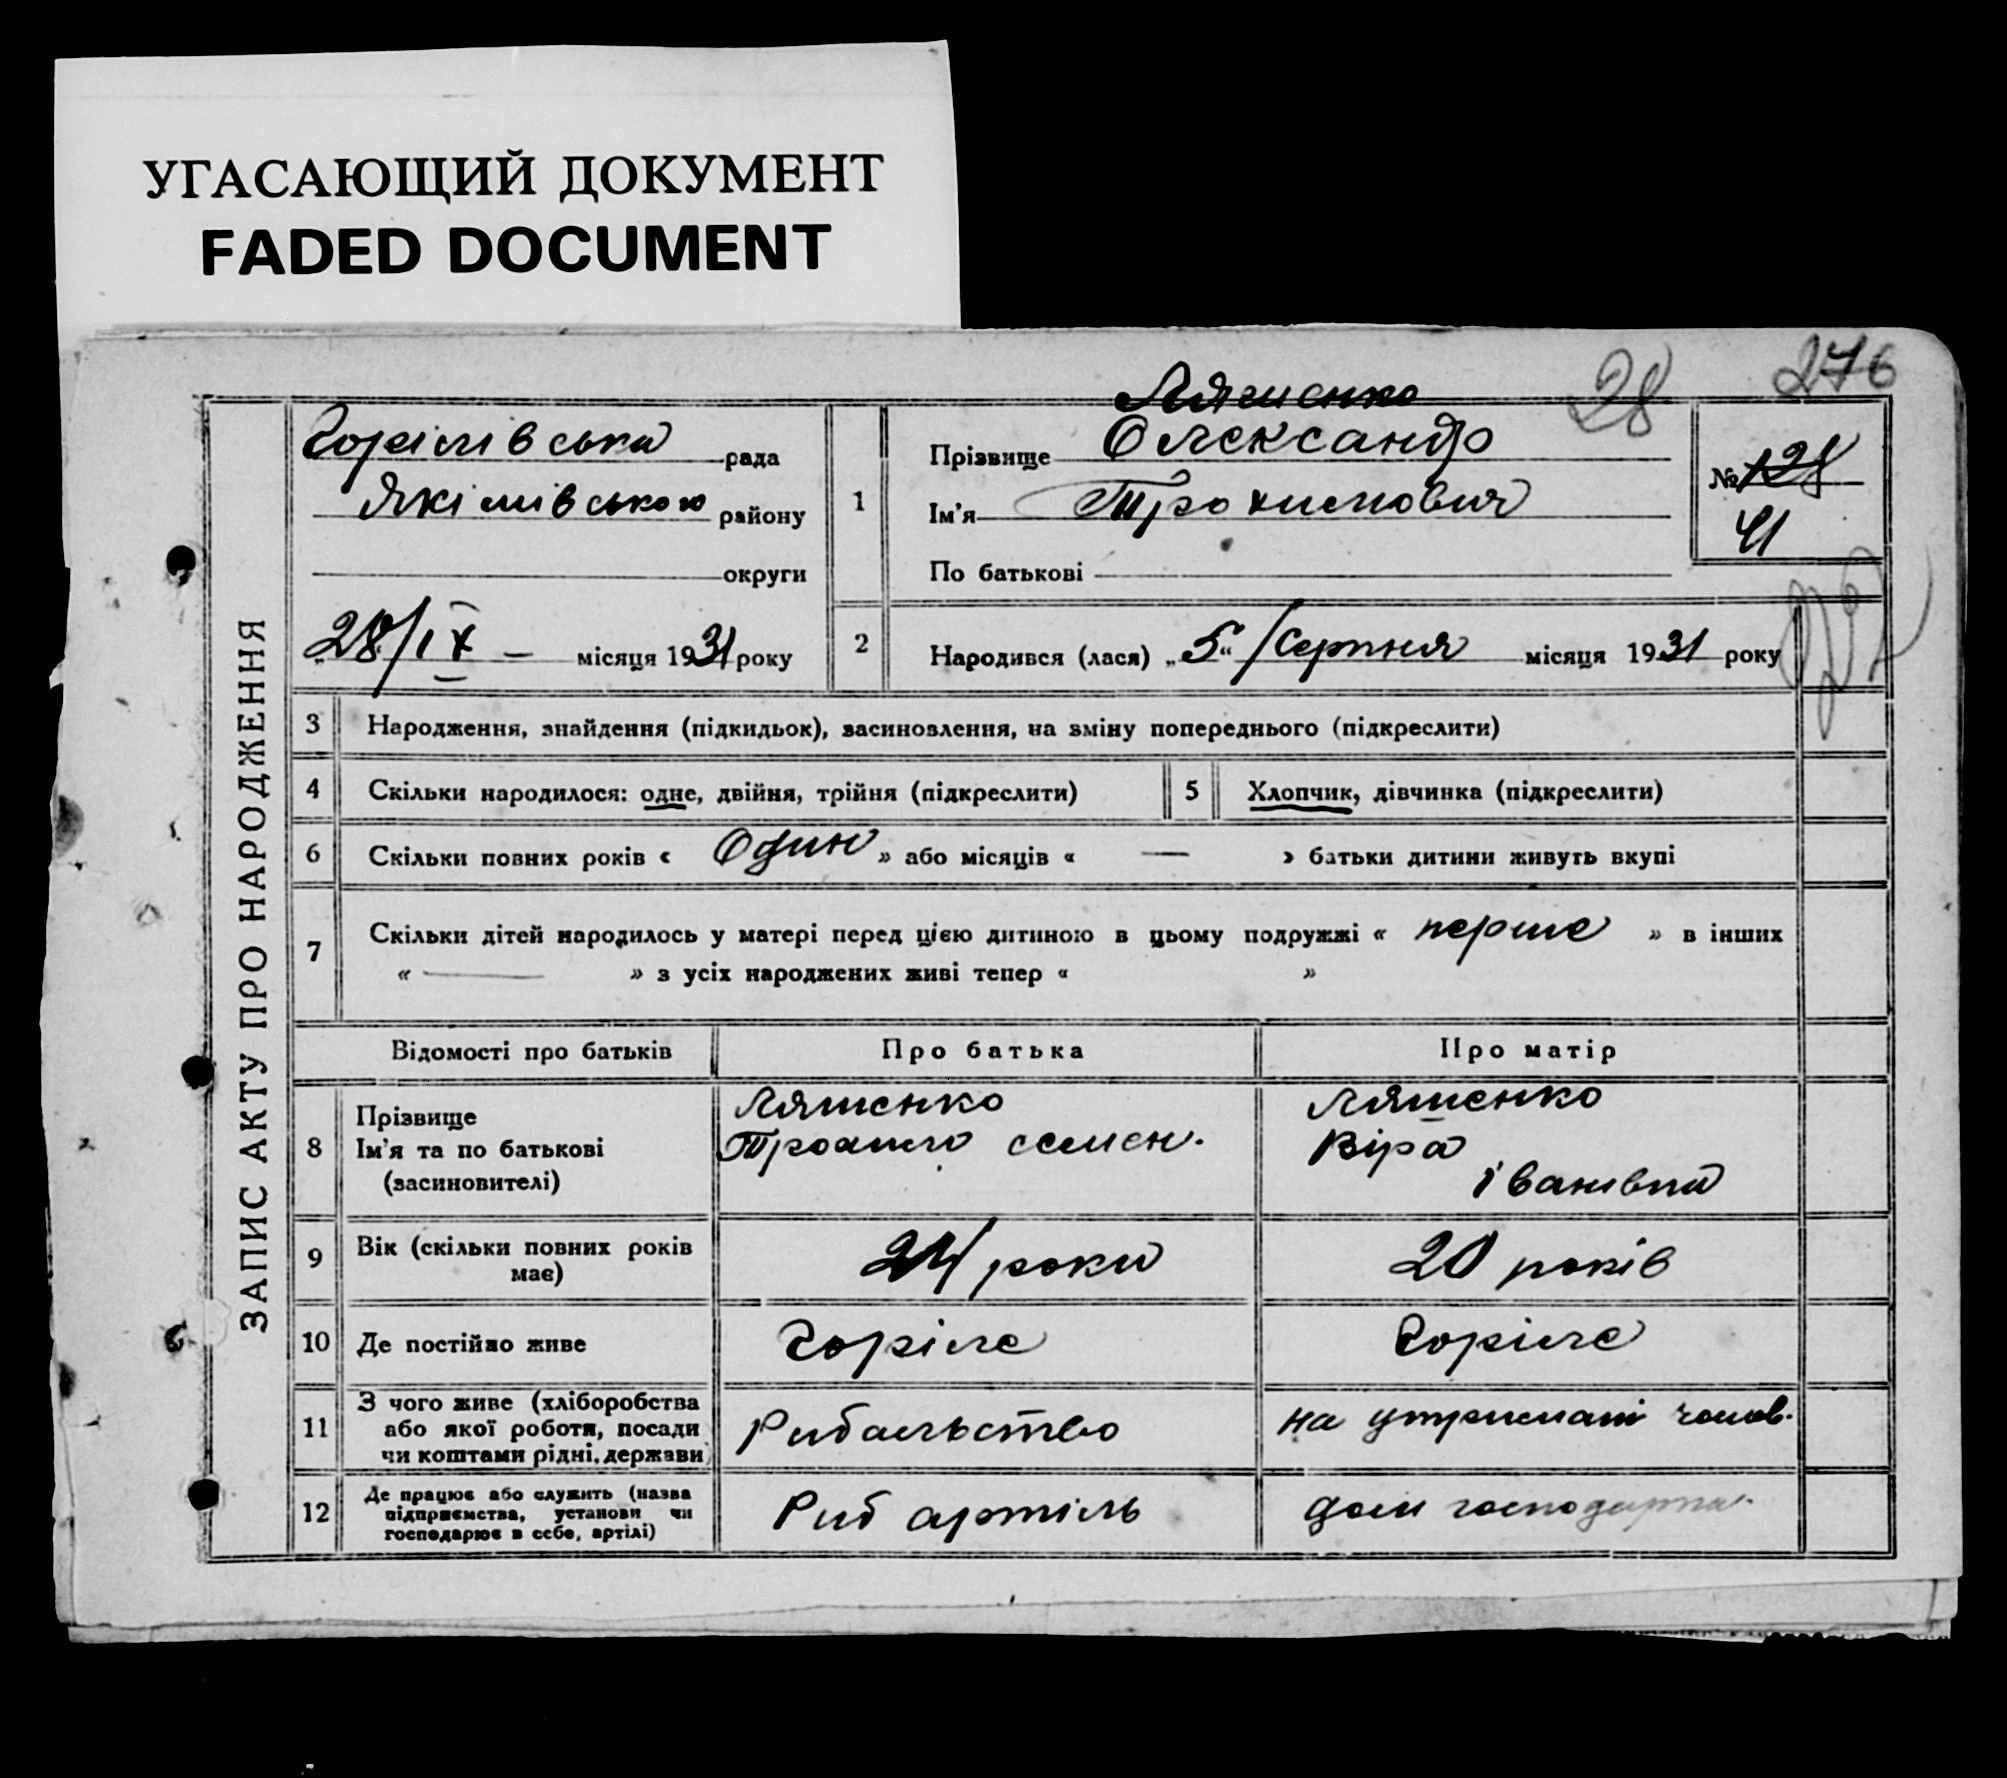 УГАСАЮЩИЙ ДОКУМЕНТ
FADED DOCUMENT
28 276
ЗАПИС АКТУ ПРО НАРОДЖЕННЯ
Горілівська рада
Якімівського району
округи
28/IX – місяця 1931 року
1
Ляшенко
Прізвище Олександр
Ім'я Трохимович
По батькові
№ 128
41
2 Народився (лася) „5“ Серпня місяця 1931 року
3 Народження, знайдення (підкидьок), засиновлення, на зміну попереднього (підкреслити)
4 Скільки народилося: одне, двійня, трійня (підкреслити) 5 Хлопчик, дівчинка (підкреслити)
6 Скільки повних років « Один » або місяців « — » батьки дитини живуть вкупі
7 Скільки дітей народилось у матері перед цією дитиною в цьому подружжі « перше » в інших
« — » з усіх народжених живі тепер « »
Відомості про батьків Про батька Про матір
8 Прізвище Ляшенко Ляшенко
Ім'я та по батькові семен. Віра
(засиновителі) Іванівна
9 Вік (скільки повних років має) 24 роки 20 років
10 Де постійно живе Горіле Горіле
11 З чого живе (хліборобства Рибальство на утримані чолов.
або якої роботи, посади
чи коштами рідні, держави)
12 Де працює або служить (назва Риб артіль дом господарка.
підприємства, установи чи
господарює в себе, артілі)